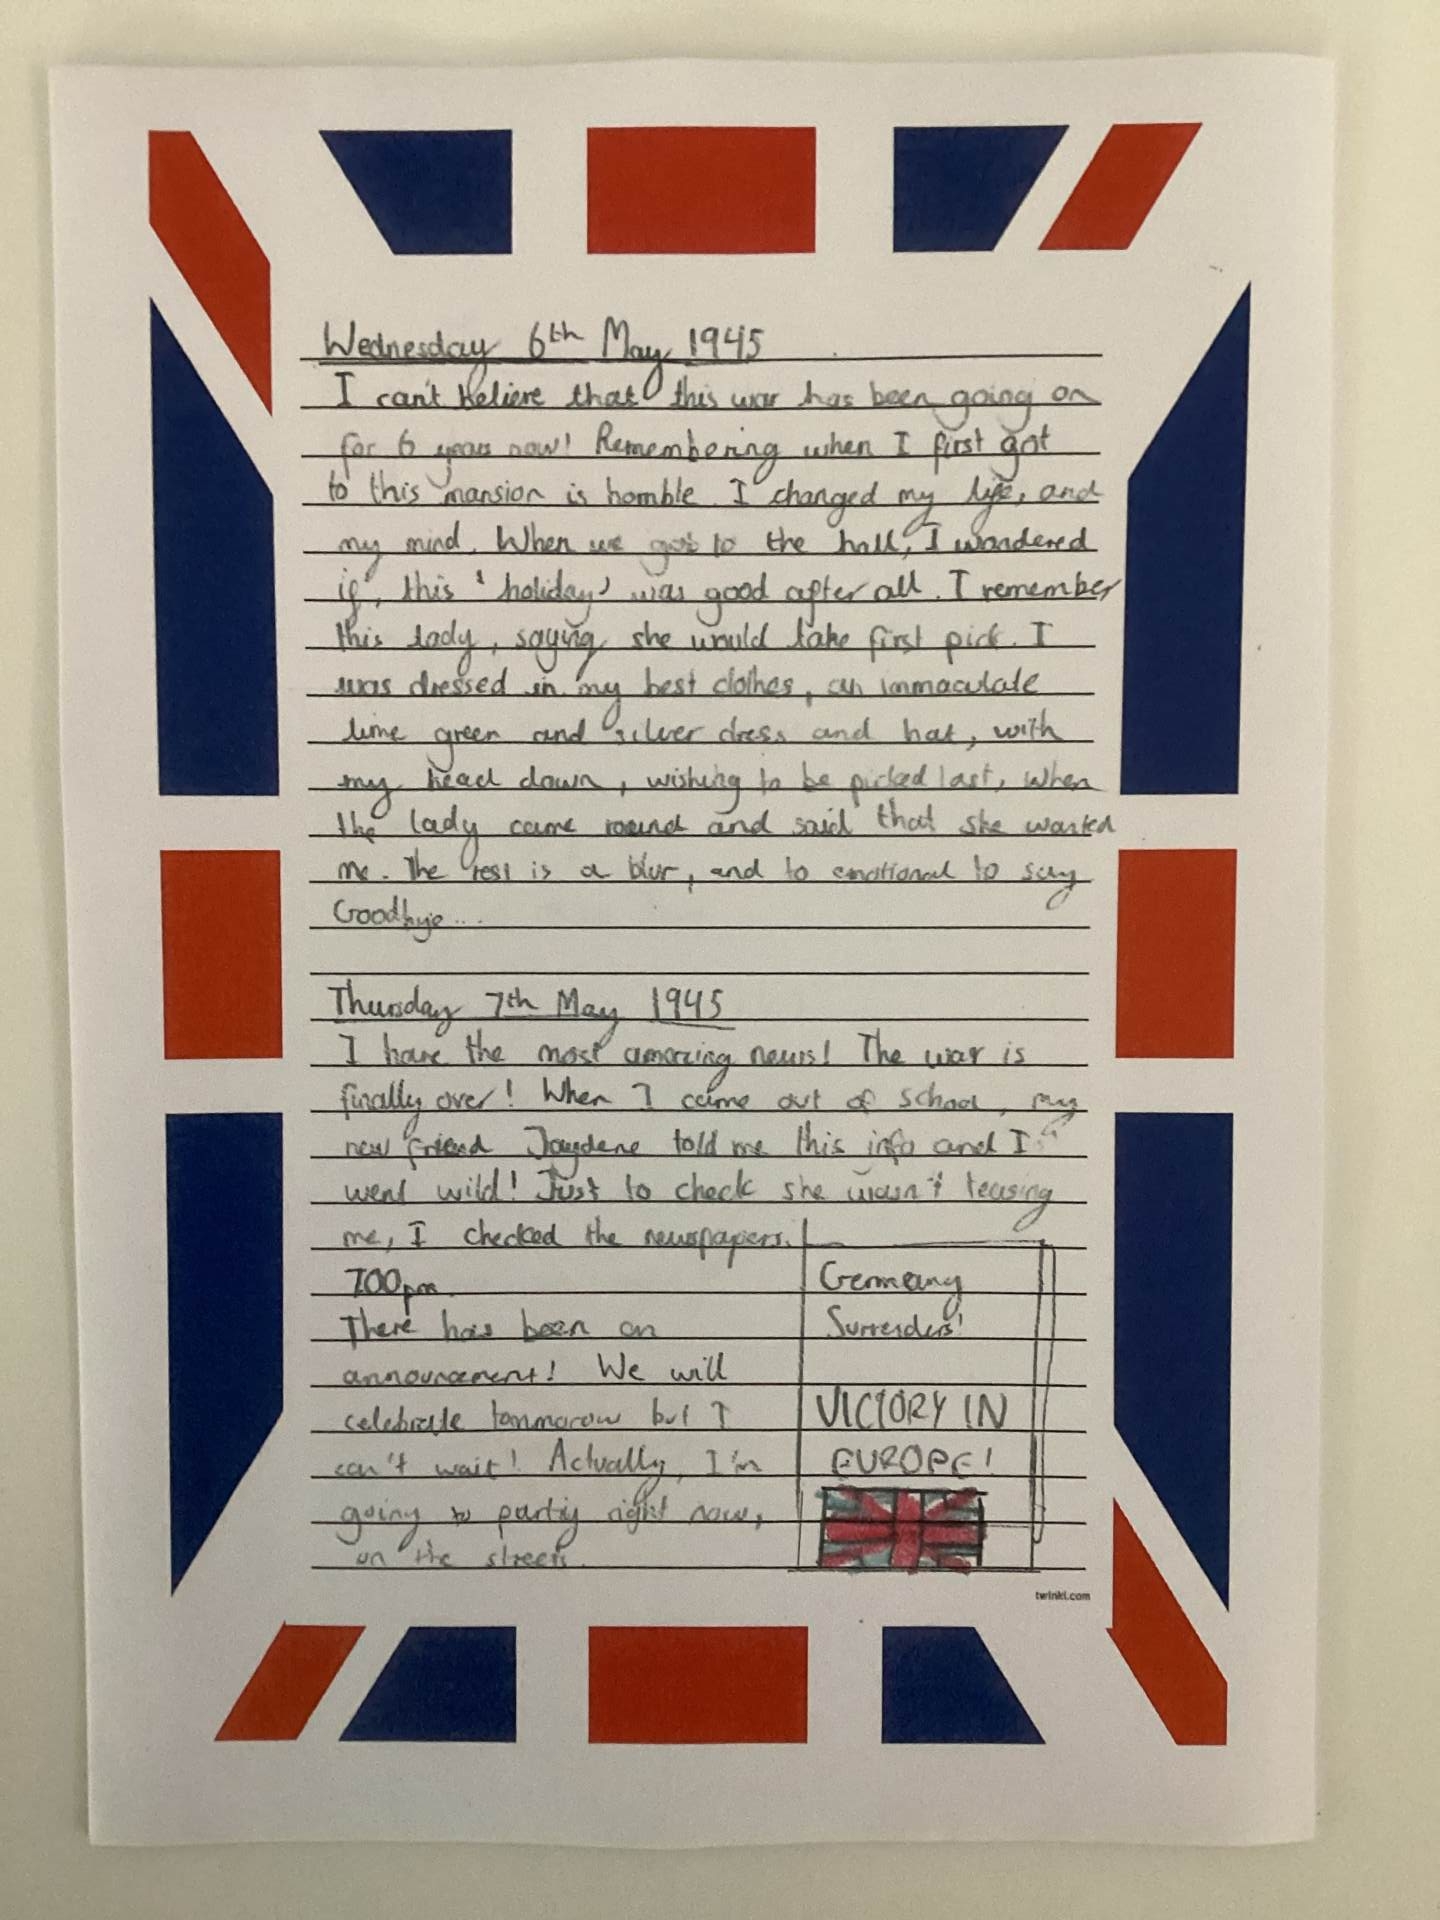 Wednesday 6th May 1945
I can't believe that this war has been going on
for 6 years now! Remembering when I first got
to this mansion is horrible. I changed my life, and
my mind. When we got to the hall, I wondered
if, this 'holiday' was good after all. I remember
this lady, saying she would take first pick. I
was dressed in my best clothes, an immaculate
lime green and silver dress and hat, with
my head down, wishing to be picked last, when
the lady came round and said that she wanted
me. The rest is a blur, and to emotional to say
Goodbye...
Thursday 7th May 1945
I have the most amazing news! The war is
finally over! When I came out of school, my
new friend Jaydene told me this info and I
went wild! Just to check she wasn't teasing
me, I checked the newspapers.
700pm.
There has been an
announcement! We will
celebrate tommorow but I
can't wait! Actually, I'm
going to party right now,
on the streets.
Germany
Surrenders!
VICTORY IN
EUROPE!
twinkl.com